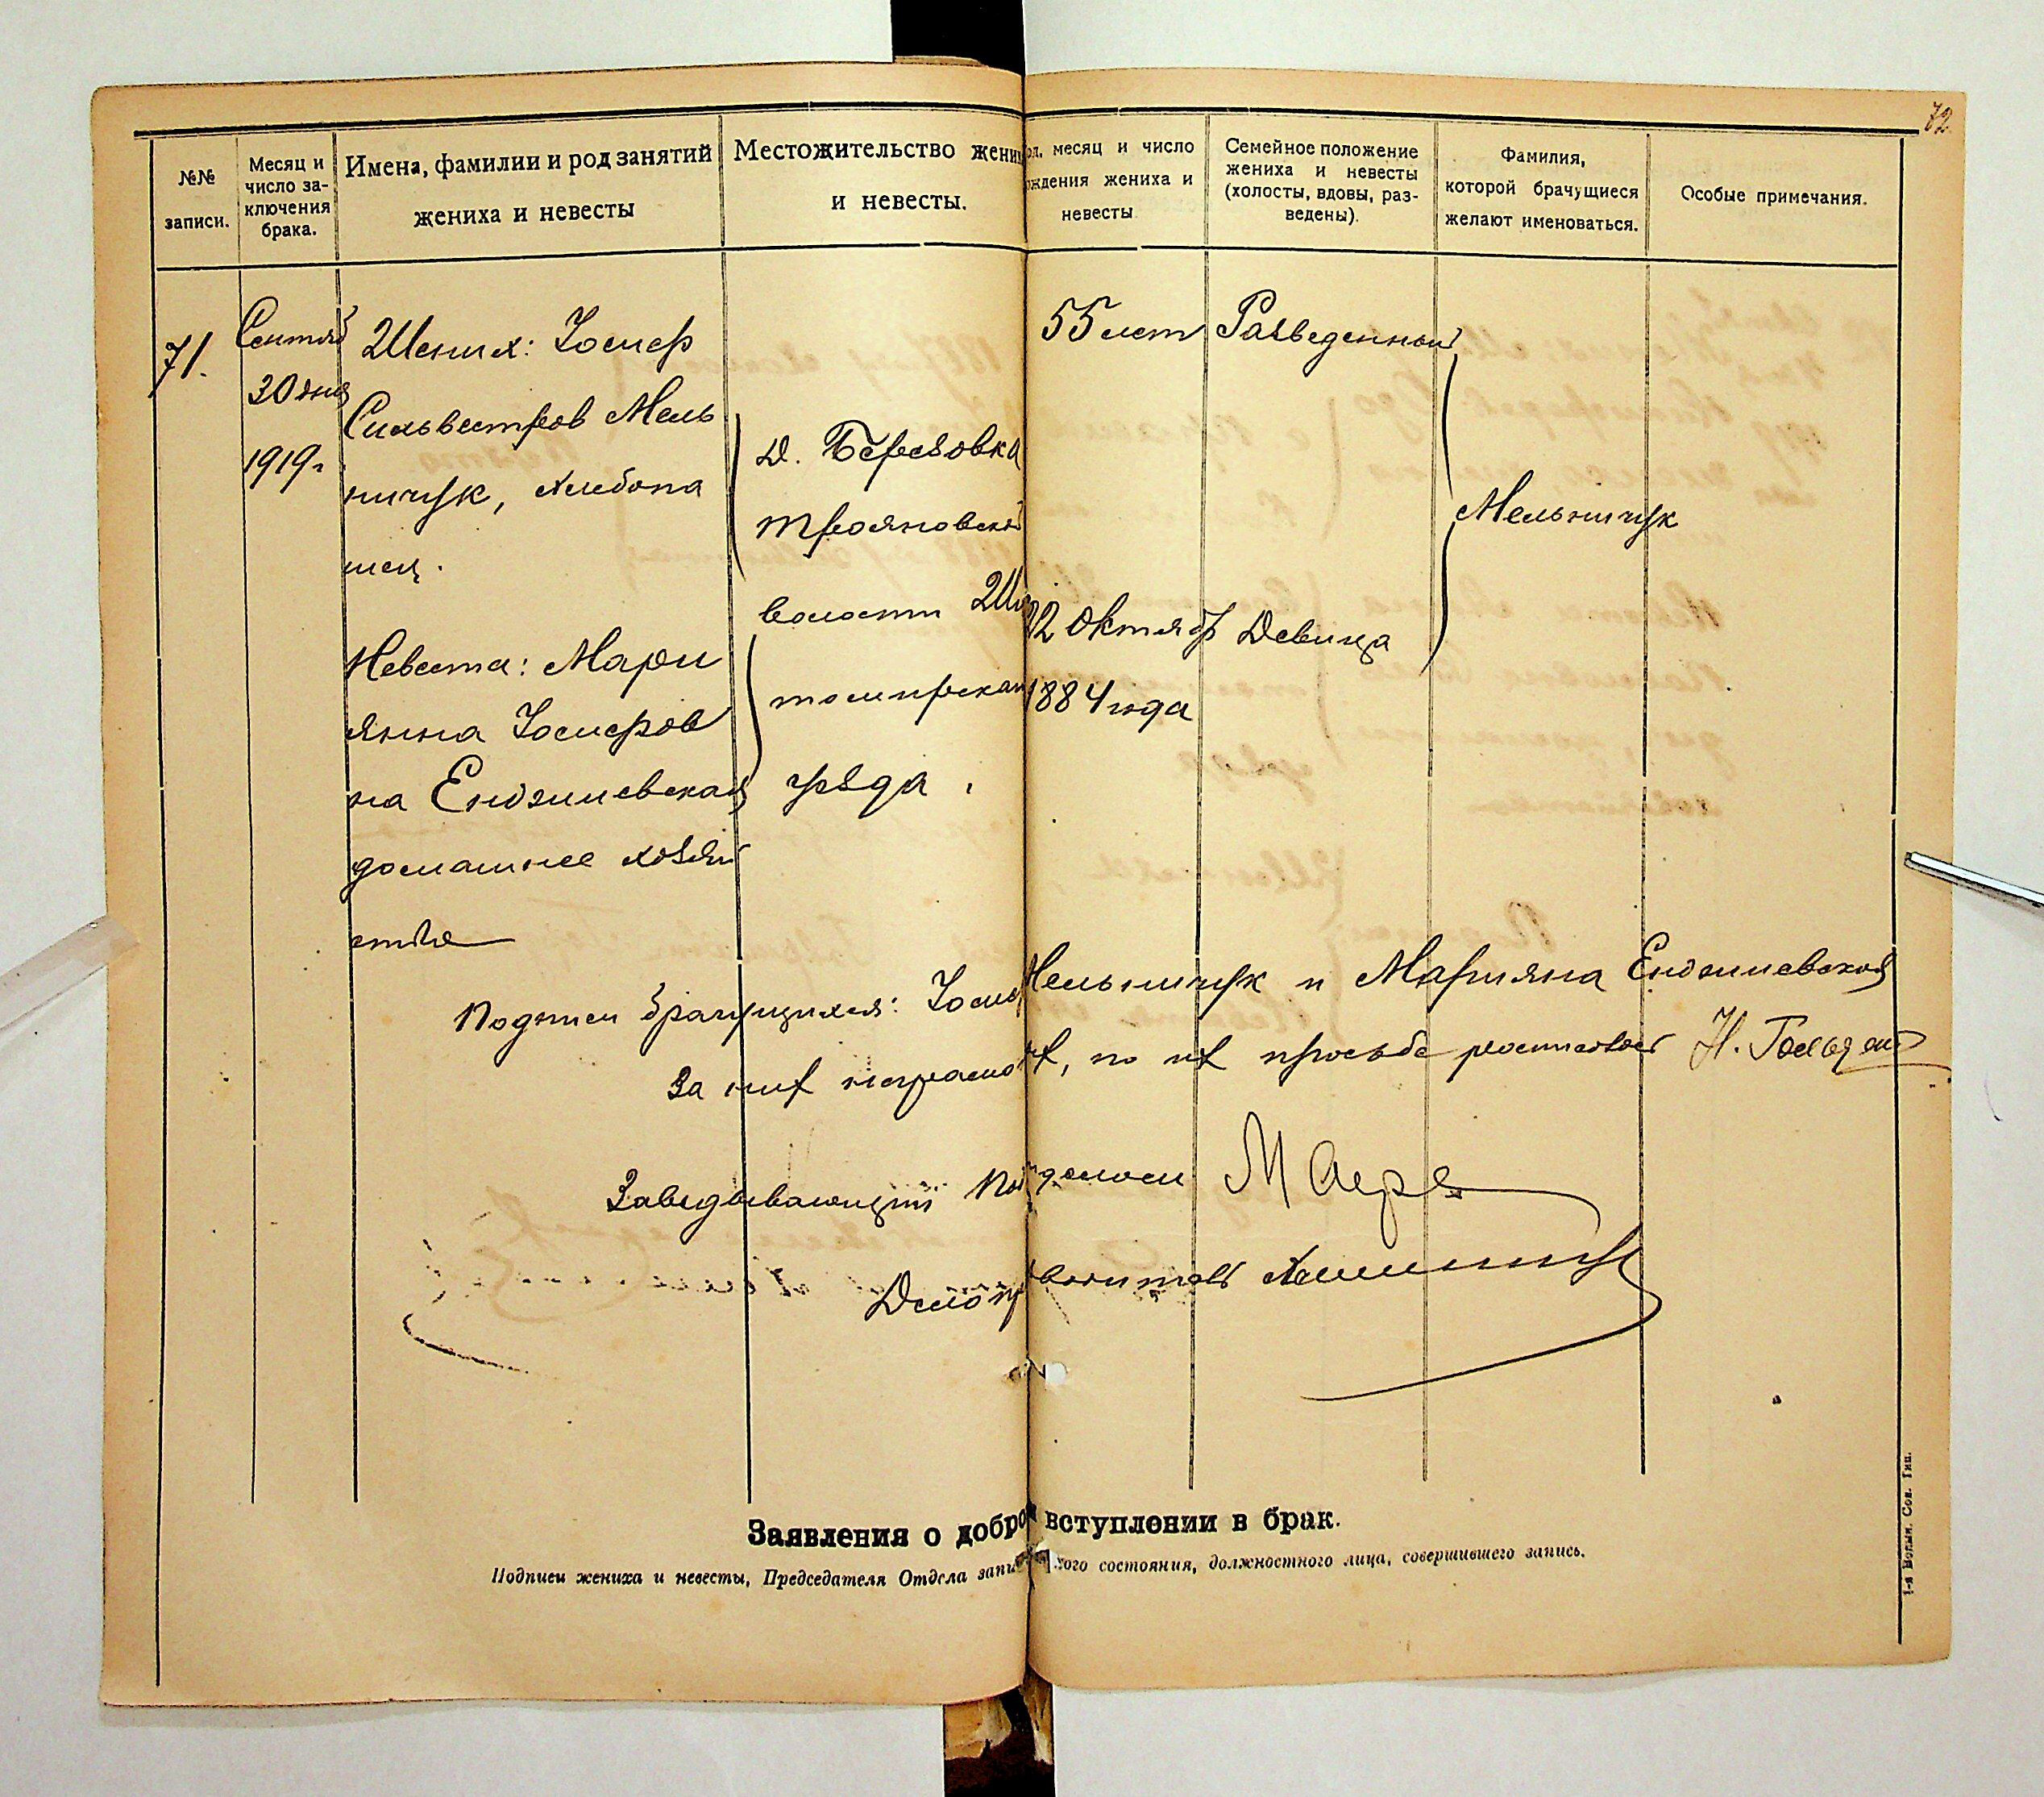 72
№№ записи.
Месяц и число за-
ключения брака.
Имена, фамилии и род занятий
жениха и невесты
Местожительство жени
и невесты.
од, месяц и число
ождения жениха и
невесты
Семейное положение
жениха и невесты
(холосты, вдовы, раз-
ведены).
Фамилия,
которой брачущиеся
желают именоваться.
Особые примечания.
71.
Сентяб
30 дня
1919 г.
Жених: Іосиф
Сильвестров Мель
ничук, хлебопа
шец.
Невеста: Мари
янна Іосифов
на Ендзиевская
домашнее хозяй
ство
д. Березовка
Трояновской
волости Жи
томирскаго
уезда.
55 лет
22 Октября
1884 года
Разведенный
Девица
Мельничук
Подписи брачущихся: Іосиф Мельничук и Марияна Ендзиевская
За них неграмотных, по их просьбе росписался Н.
Заведывающий Подотделом
Делопроизводитель
Заявления о добро вступлении в брак.
Подписи жениха и невесты, Председателя Отдела запи кого состояния, должностного лица, совершившего запись.
1-я Волын. Сов. Тип.